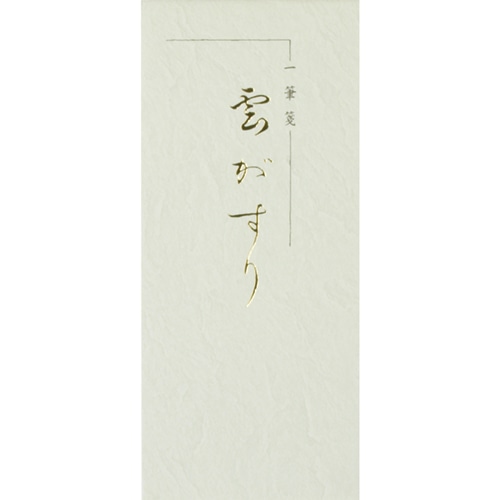 一筆箋
雲がすり